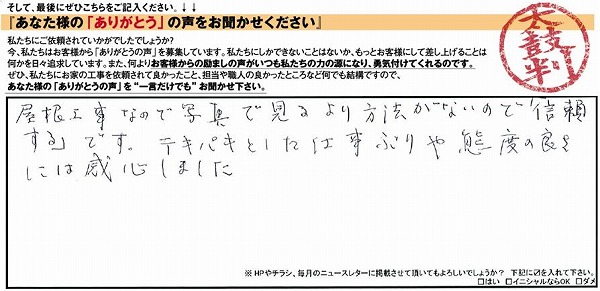 そして、最後にぜひこちらをご記入ください。↓↓
『あなた様の「ありがとう」の声をお聞かせください』
私たちにご依頼されていかがでしたでしょうか?
今、私たちはお客様から「ありがとうの声」を募集しています。私たちにしかできないことはないか、もっとお客様にして差し上げることは
何かを日々追求しています。また、何よりお客様からの励ましの声がいつも私たちの力の源になり、勇気付けてくれるのです。
ぜひ、私たちにお家の工事を依頼されて良かったこと、担当や職人の良かったところなど何でも結構ですので、
あなた様の「ありがとうの声」を“一言だけでも”お聞かせ下さい。
太鼓判
屋根工事なので写真で見るより方法がないので「信頼
する」です。テキパキとした仕事ぶりや態度の良さ
には感心しました
※HPやチラシ、毎月のニュースレターに掲載させて頂いてもよろしいでしょうか? 下記に☑を入れて下さい。
□はい □イニシャルならOK □ダメ